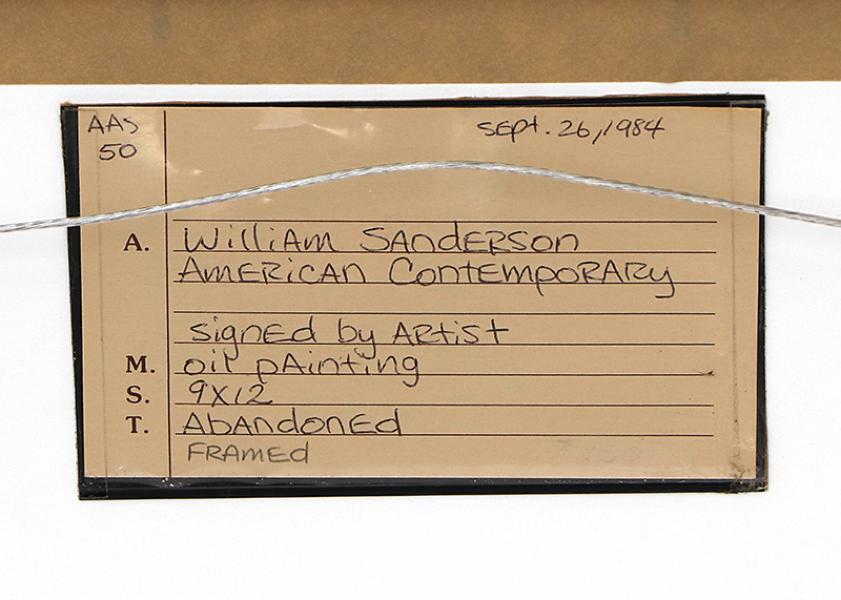 AAS
50
Sept. 26, 1984
A. William Sanderson
American Contemporary
signed by Artist
M. oil painting
S. 9x12
T. Abandoned
Framed